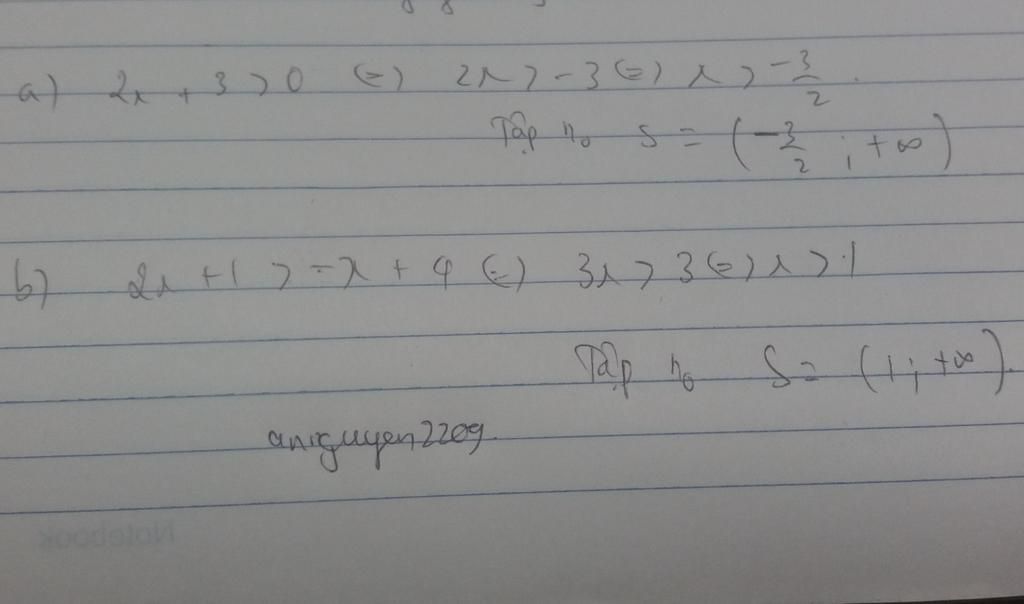 a) 2x + 3 > 0 (=) 2x > -3 (=) x > -3/2.
Tập no S = (-3/2 ; +∞)
b) 2x + 1 > -x + 4 (=) 3x > 3 (=) x > 1
Tập no S = (1; +∞).
annguyen2209.
Notebook